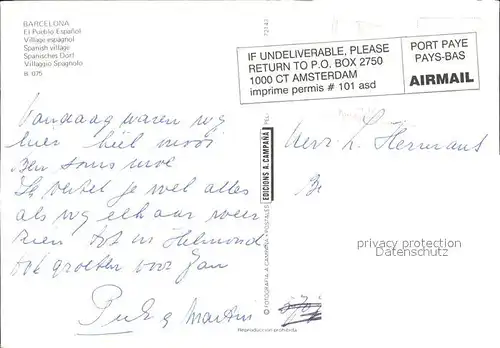 BARCELONA
El Pueblo Español
Village espagnol
Spanish village
Spanisches Dorf
Villaggio Spagnolo
B. 075
IF UNDELIVERABLE, PLEASE
RETURN TO P.O. BOX 2750
1000 CT AMSTERDAM
imprime permis # 101 asd
PORT PAYE
PAYS-BAS
AIRMAIL
Vandaag waren wy
hier heel mooi
Ben soms moe
Ik vertel je wel alles
als wy elkaar weer
zien tot in Helmond
tot groeten voor Jan
Martin
EDICIONS A. CAMPAÑA
© FOTOGRAFIA A. CAMPAÑA
Reproducción prohibida
L. Hermans
privacy protection
Datenschutz